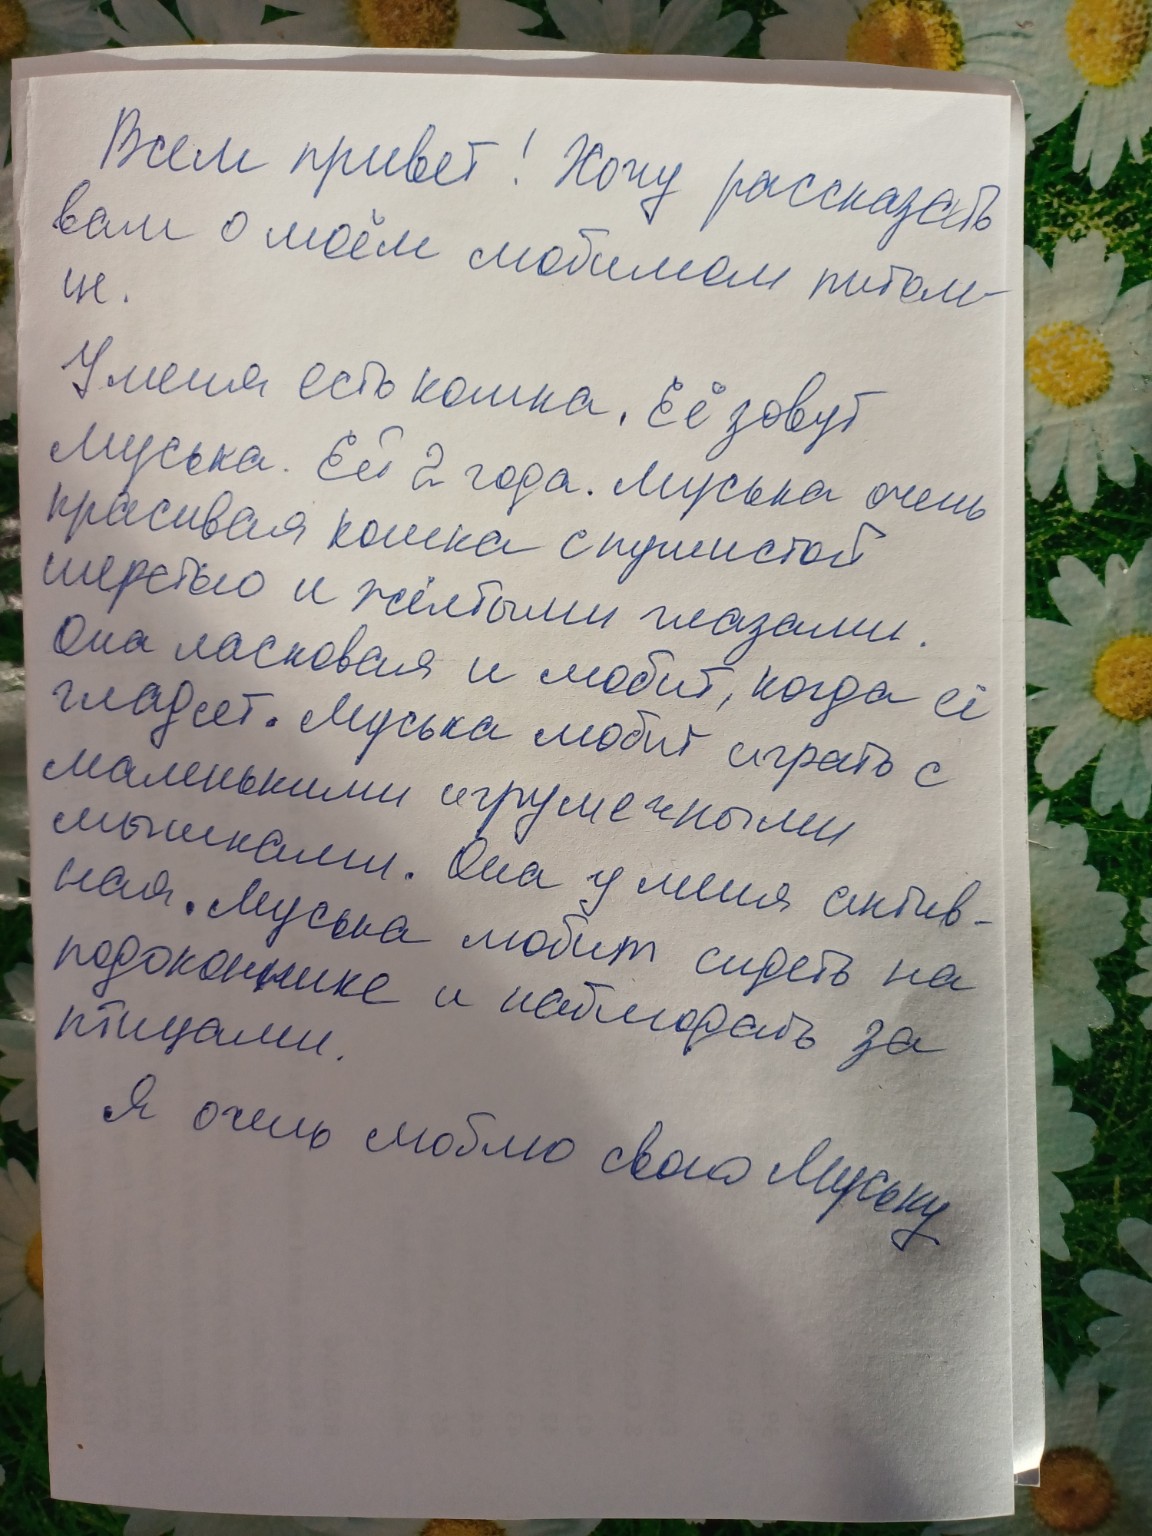 Всем привет! Хочу рассказать
вам о моём любимом питом-
це.
У меня есть кошка. Её зовут
Муська. Ей 2 года. Муська очень
красивая кошка с пушистой
шерстью и жёлтыми глазами.
Она ласковая и любит, когда её
гладят. Муська любит играть с
маленькими игрушечными
мышками. Она у меня актив-
ная. Муська любит сидеть на
подоконнике и наблюдать за
птицами.
Я очень люблю свою Муську